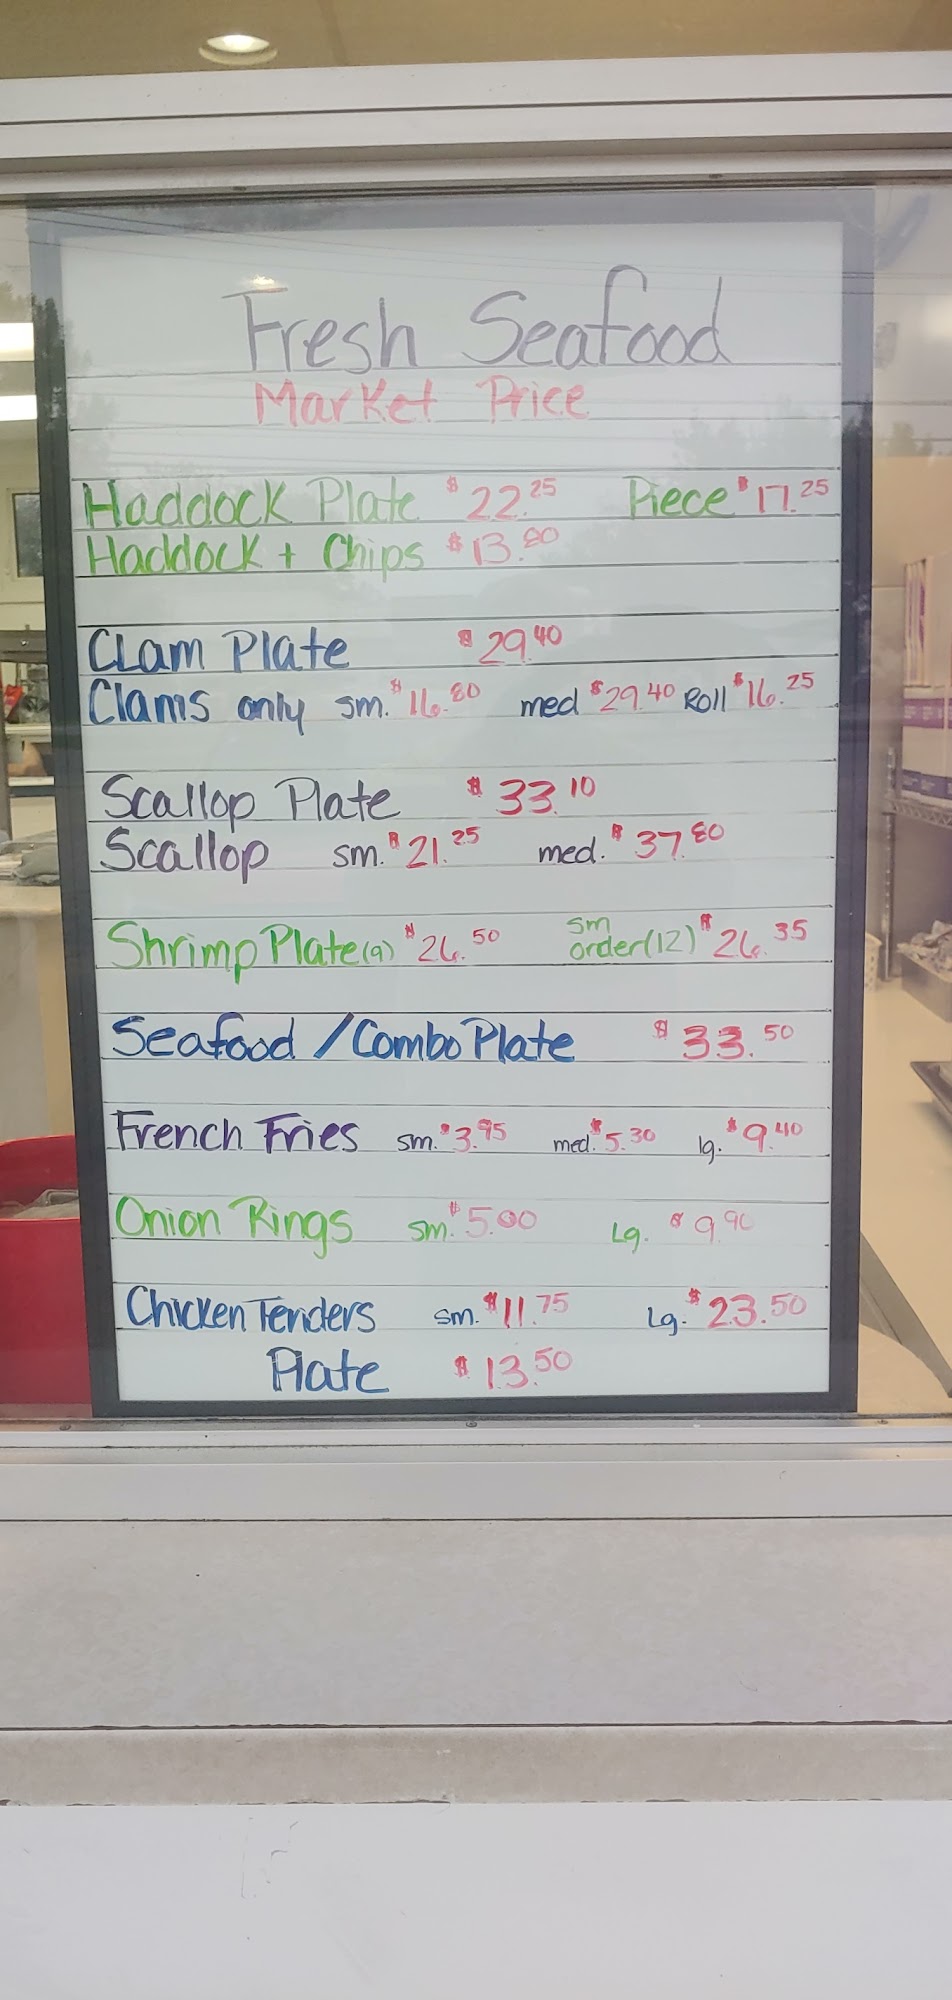 Fresh Seafood
Market Price
Haddock Plate $22.25 Piece $17.25
Haddock + Chips $13.80
Clam Plate $29.40
Clams only sm. $16.80 med $29.40 Roll $16.25
Scallop Plate $33.10
Scallop sm. $21.25 med. $37.80
Shrimp Plate (9) $26.50 sm order (12) $26.35
Seafood / Combo Plate $33.50
French Fries sm. $3.95 med. $5.30 lg. $9.40
Onion Rings sm. $5.00 Lg. $9.90
Chicken Tenders sm. $11.75 Lg. $23.50
Plate $13.50